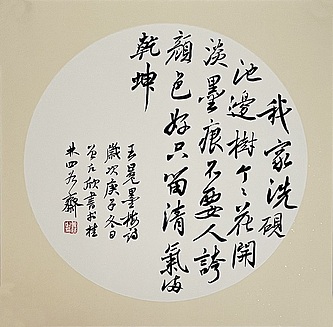 我家洗硯
池邊樹个々花開
淡墨痕不要人誇
顏色好只留清氣滿
乾坤
王冕墨梅詩
歲次庚子冬日
欣書於桂
林四齋